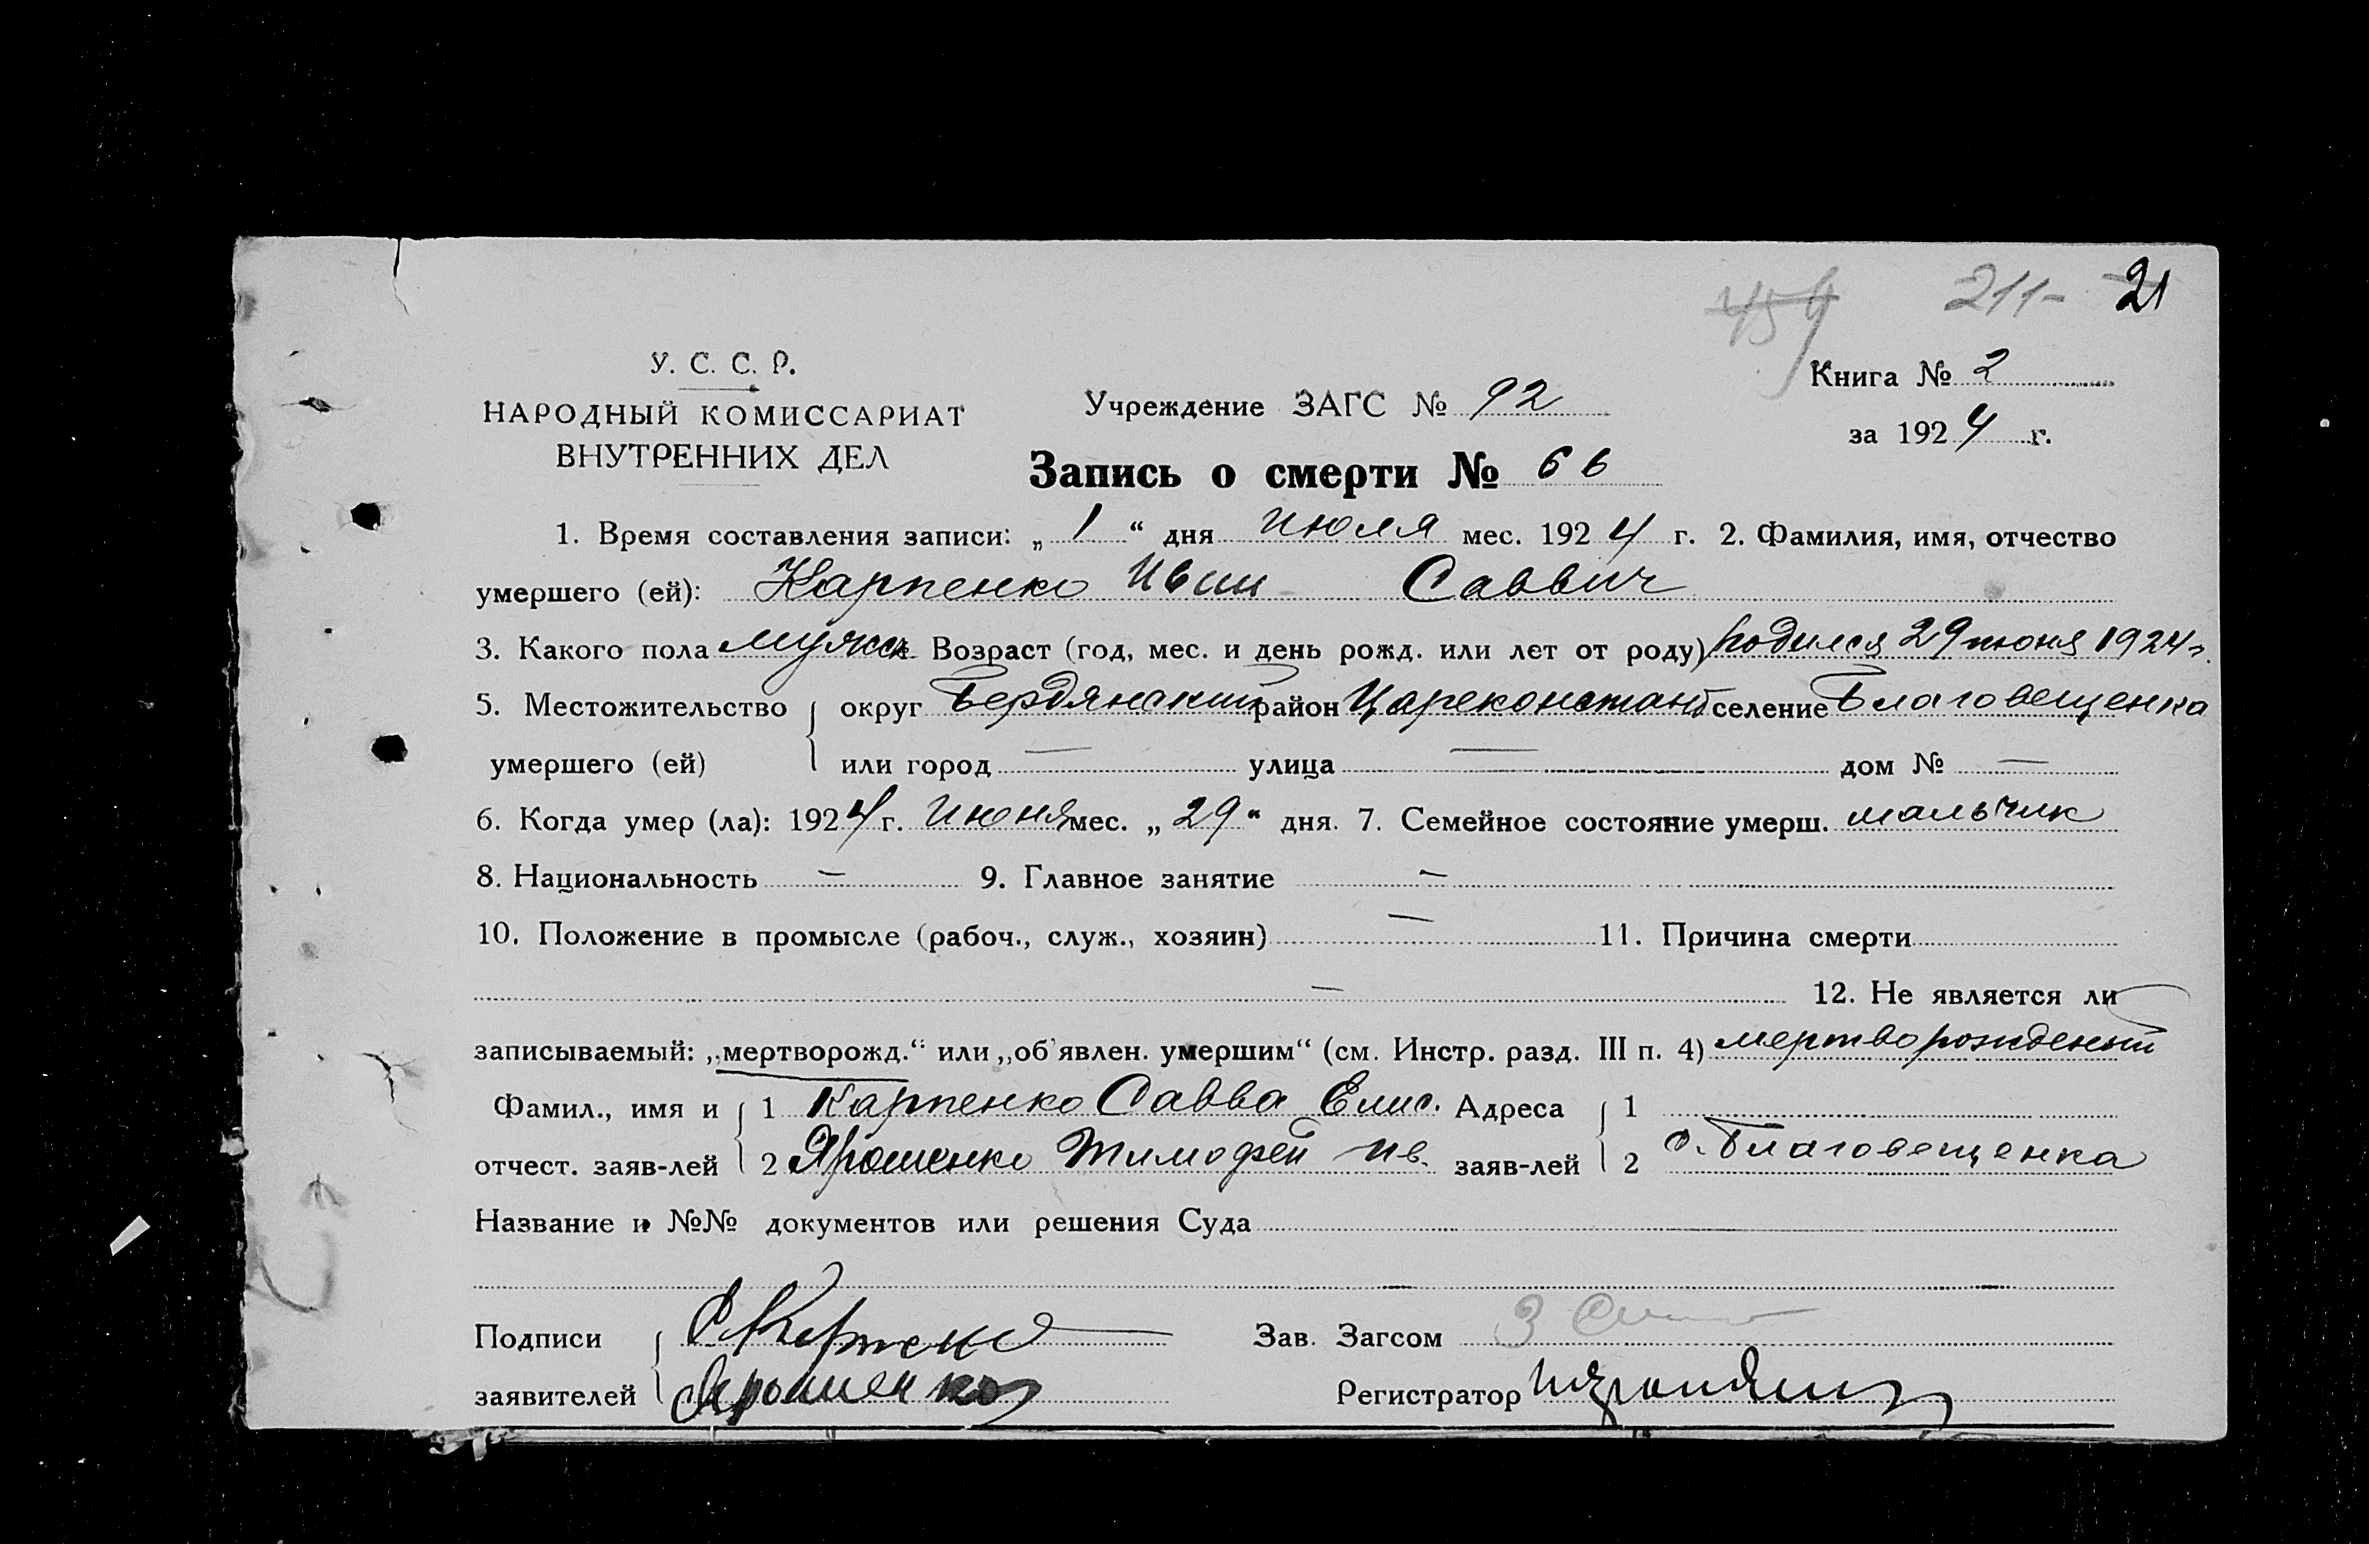 459 211- 21
У. С. С. Р.
НАРОДНЫЙ КОМИССАРИАТ
ВНУТРЕННИХ ДЕЛ
Учреждение ЗАГС № 92
Книга № 2
за 1924 г.
Запись о смерти № 66
1. Время составления записи: „ 1 “ дня июля мес. 1924 г. 2. Фамилия, имя, отчество
умершего (ей): Карпенко Иван Саввич
3. Какого пола мужск. Возраст (год, мес. и день рожд. или лет от роду) родился 29 июня 1924 г.
5. Местожительство округ Бердянский район Цареконстант селение Благовещенка
умершего (ей) или город — улица — дом № —
6. Когда умер (ла): 1924 г. июня мес. „ 29 “ дня. 7. Семейное состояние умерш. мальчик
8. Национальность — 9. Главное занятие —
10. Положение в промысле (рабоч., служ., хозяин) — 11. Причина смерти
— 12. Не является ли
записываемый: „мертворожд.“ или „об'явлен. умершим“ (см. Инстр. разд. III п. 4) мертворожденный
Фамил., имя и 1 Карпенко Савва Елис. Адреса 1
отчест. заяв-лей 2 Ярошенко Тимофей Ив. заяв-лей 2 с. Благовещенка
Название и №№ документов или решения Суда
Подписи С Карпенко Зав. Загсом
заявителей Ярошенко Регистратор